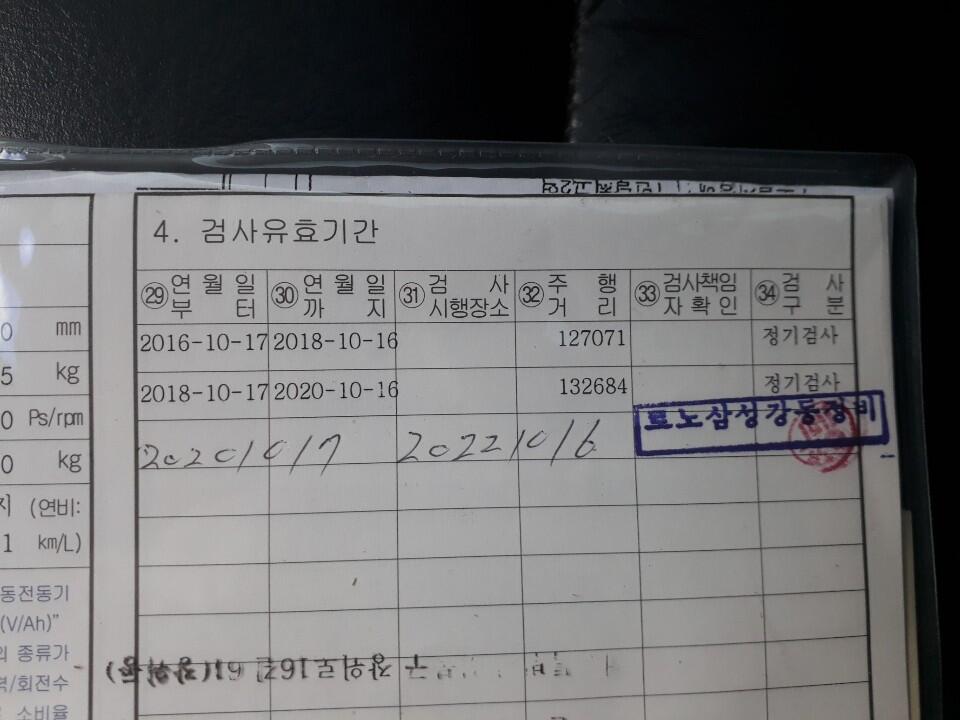 4. 검사유효기간
㉙ 연월일부터 ㉚ 연월일까지 ㉛ 검사시행장소 ㉜ 주행거리 ㉝ 검사책임자확인 ㉞ 검사구분
2016-10-17 2018-10-16 127071 정기검사
2018-10-17 2020-10-16 132684 정기검사
20201017 20221016 르노삼성강동정비
0 mm
5 kg
0 Ps/rpm
0 kg
지 (연비:
1 km/L)
동전동기
(V/Ah)"
의 종류가
력/회전수
소비율
구 장위로16길 61(장위동)